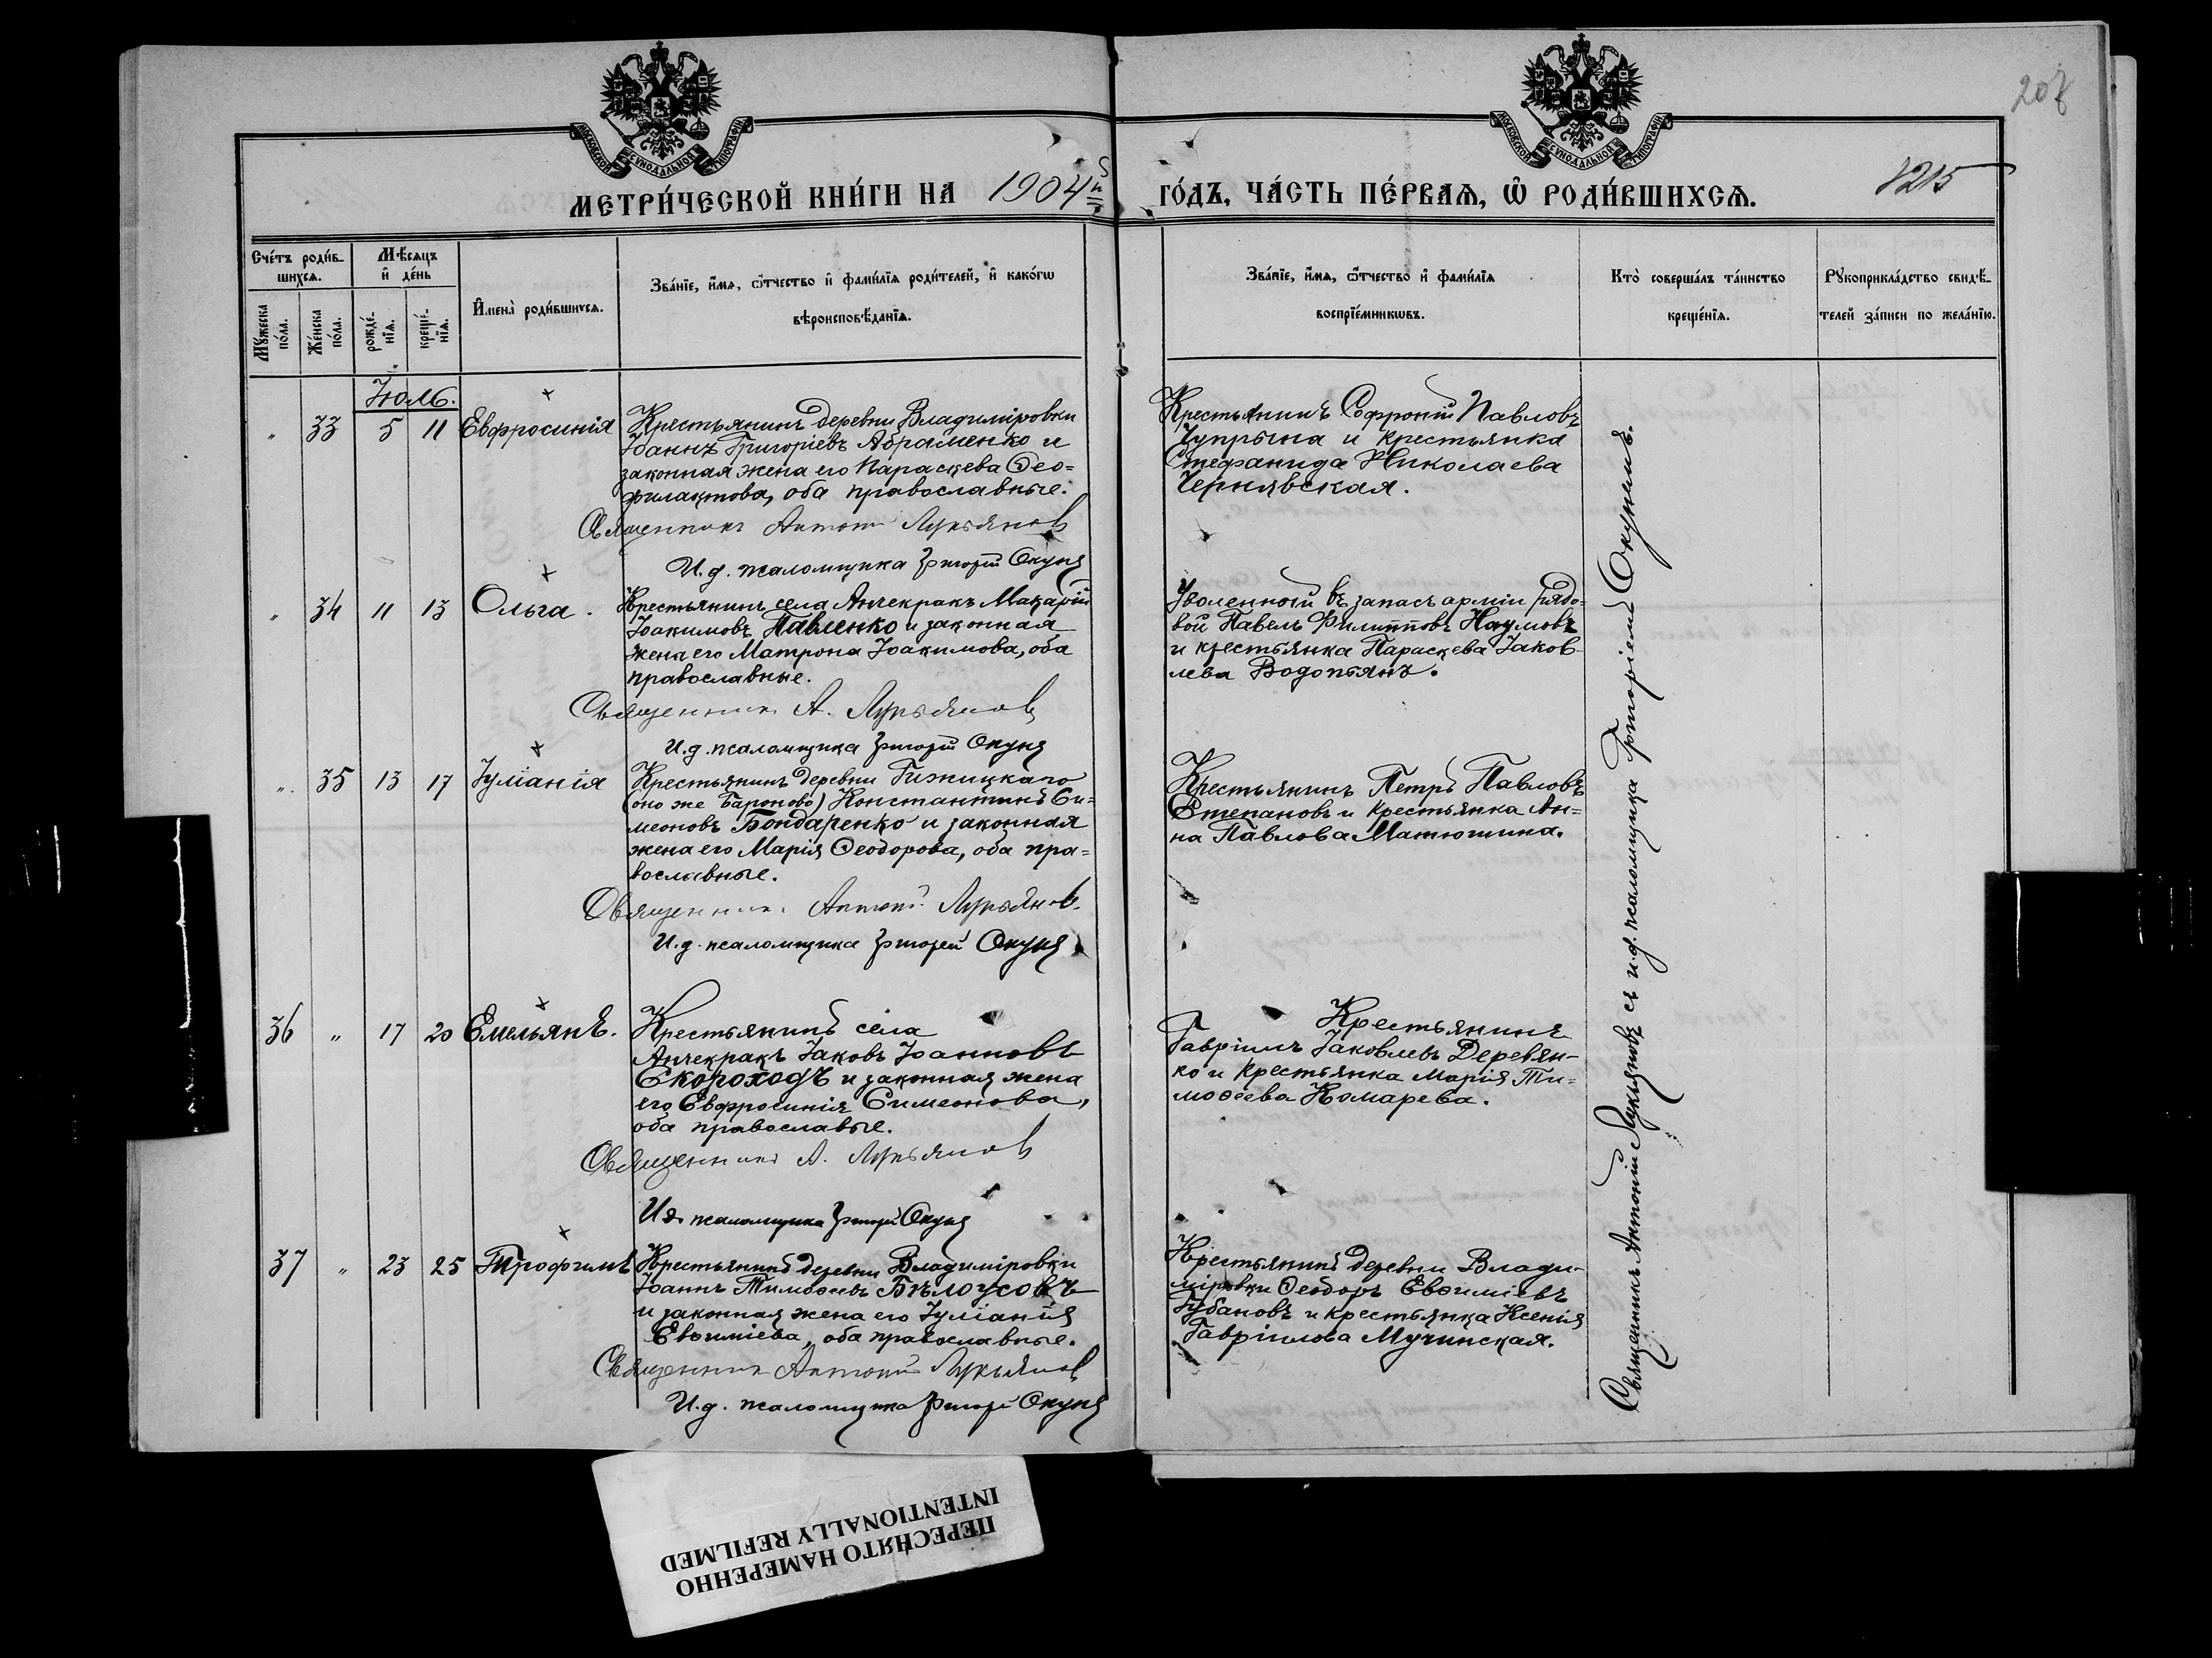 207
МОСКОВСКОЙ СУНОДАЛЬНОЙ ТИПОГРАФІИ
МОСКОВСКОЙ СУНОДАЛЬНОЙ ТИПОГРАФІИ
МЕТРИ́ЧЕСКОЙ КНИ́ГИ НА 1904й ГО́ДЪ, ЧА́СТЬ ПЕ́РВАѦ, Ѽ РОДИ́ВШИХСѦ.
1215
Сче́тъ роди́в-
шихсѧ.
Мѣ́сѧцъ
и҆ де́нь
Мꙋ́жеска
по́ла.
Же́нска
по́ла.
рожде́-
нїѧ.
креще́-
нїѧ.
И҆мена̀ роди́вшихсѧ.
Зва́нїе, и҆́мѧ, ѻ҆́тчество и҆ фами́лїѧ роди́телей, и҆ како́гѡ
вѣроисповѣ́данїѧ.
Зва́нїе, и҆́мѧ, ѻ҆́тчество и҆ фами́лїѧ
воспрїе́мникѡвъ.
Кто̀ соверша́лъ та́инство
креще́нїѧ.
Рꙋкоприкла́дство свидѣ́-
телей за́писи по жела́нїю.
Іюль.
" 33 5 11 Евфросинія
Крестьянинъ деревни Владиміровки
Іоаннъ Григоріевъ Абраменко и
законная жена его Параскева Ѳео=
филактова, оба православные.
Священникъ Антоній Лукьяновъ
И.д. псаломщика Григорій Окунь
Крестьянинъ Софроній Павловъ
Чупрына и крестьянка
Стефанида Николаева
Чернявская.
" 34 11 13 Ольга.
Крестьянинъ села Анчекракъ Макарій
Іоакимовъ Павленко и законная
жена его Матрона Іоакимова, оба
православные.
Священникъ А. Лукьяновъ
И.д. псаломщика Григорій Окунь
Уволенной въ запасъ арміи рядо=
вой Павелъ Филипповъ Наумовъ
и крестьянка Параскева Іаков-
лева Водопьянъ.
" 35 13 17 Іуліанія
Крестьянинъ деревни Гижицкаго
(оно же Бароново) Константинъ Си=
меоновъ Бондаренко и законная
жена его Марія Ѳеодорова, оба пра=
вославные.
Священникъ Антоній Лукьяновъ.
И.д. псаломщика Григорій Окунь
Крестьянинъ Петръ Павловъ
Степановъ и крестьянка Ан=
на Павлова Матюшина.
36 " 17 20 Емельянъ.
Крестьянинъ села
Анчекракъ Іаковъ Іоанновъ
Скороходъ и законная жена
его Евфросинія Симеонова,
оба православые.
Священникъ А. Лукьяновъ
И.д. псаломщика Григорій Окунь
Крестьянинъ
Гавріилъ Іаковлевъ Деревян-
ко и крестьянка Марія Ти=
моѳеева Комарева.
37 " 23 25 Трофимъ
Крестьянинъ деревни Владиміровки
Іоаннъ Тимоѳеевъ Бѣлоусовъ
и законная жена его Іуліанія
Евѳиміева, оба православные.
Священникъ Антоній Лукьяновъ
И.д. псаломщика Григорій Окунь
Крестьянинъ деревни Влади-
міровки Ѳеодоръ Евѳиміевъ
Губановъ и крестьянка Ксенія
Гавріилова Мучинская.
Священникъ Антоній Лукьяновъ съ и.д. псаломщика Григоріемъ Окунемъ.
ПЕРЕСНЯТО НАМЕРЕННО
INTENTIONALLY REFILMED